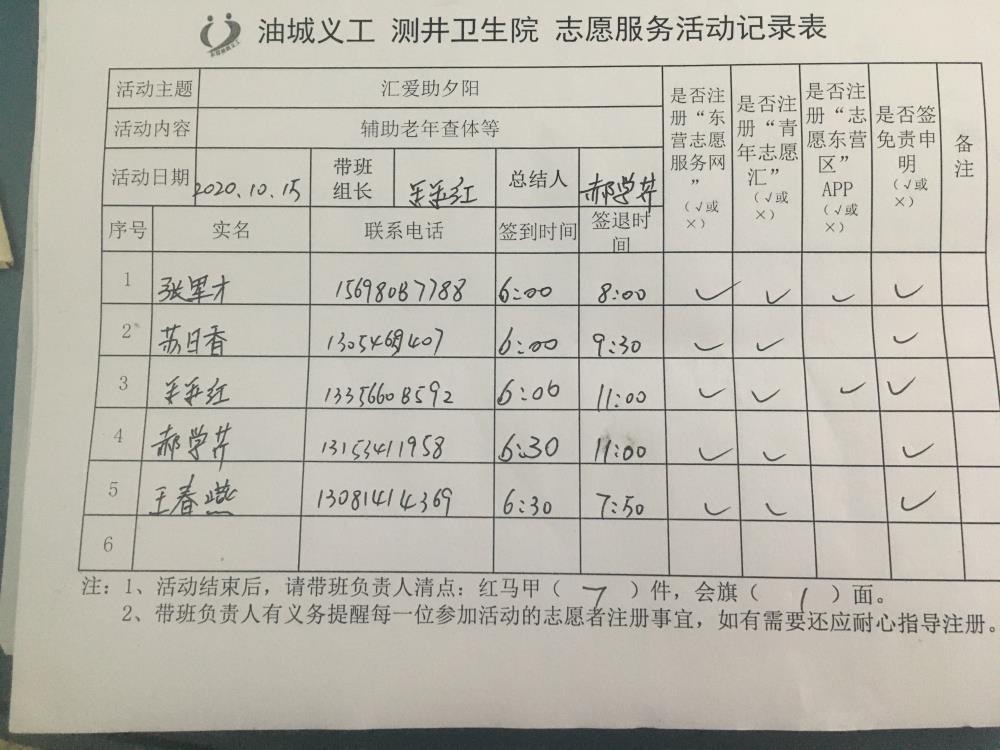 油城义工 测井卫生院 志愿服务活动记录表
活动主题 汇爱助夕阳
活动内容 辅助老年查体等
活动日期 2020.10.15 带班组长 总结人 郝学芹
是否注册“东营志愿服务网”（√或×） 是否注册“青年志愿汇”（√或×） 是否注册“志愿东营区”APP（√或×） 是否签免责申明（√或×） 备注
序号 实名 联系电话 签到时间 签退时间
1 张里才 15698087788 6:00 8:00 ✓ ✓ ✓ ✓
2 苏日香 6:00 9:30 ✓ ✓ ✓
3 13356608592 6:00 11:00 ✓ ✓ ✓ ✓
4 郝学芹 13153411958 6:30 11:00 ✓ ✓ ✓
5 王春燕 13081414369 6:30 7:50 ✓ ✓ ✓
6
注：1、活动结束后，请带班负责人清点：红马甲（ 7 ）件，会旗（ 1 ）面。
2、带班负责人有义务提醒每一位参加活动的志愿者注册事宜，如有需要还应耐心指导注册。